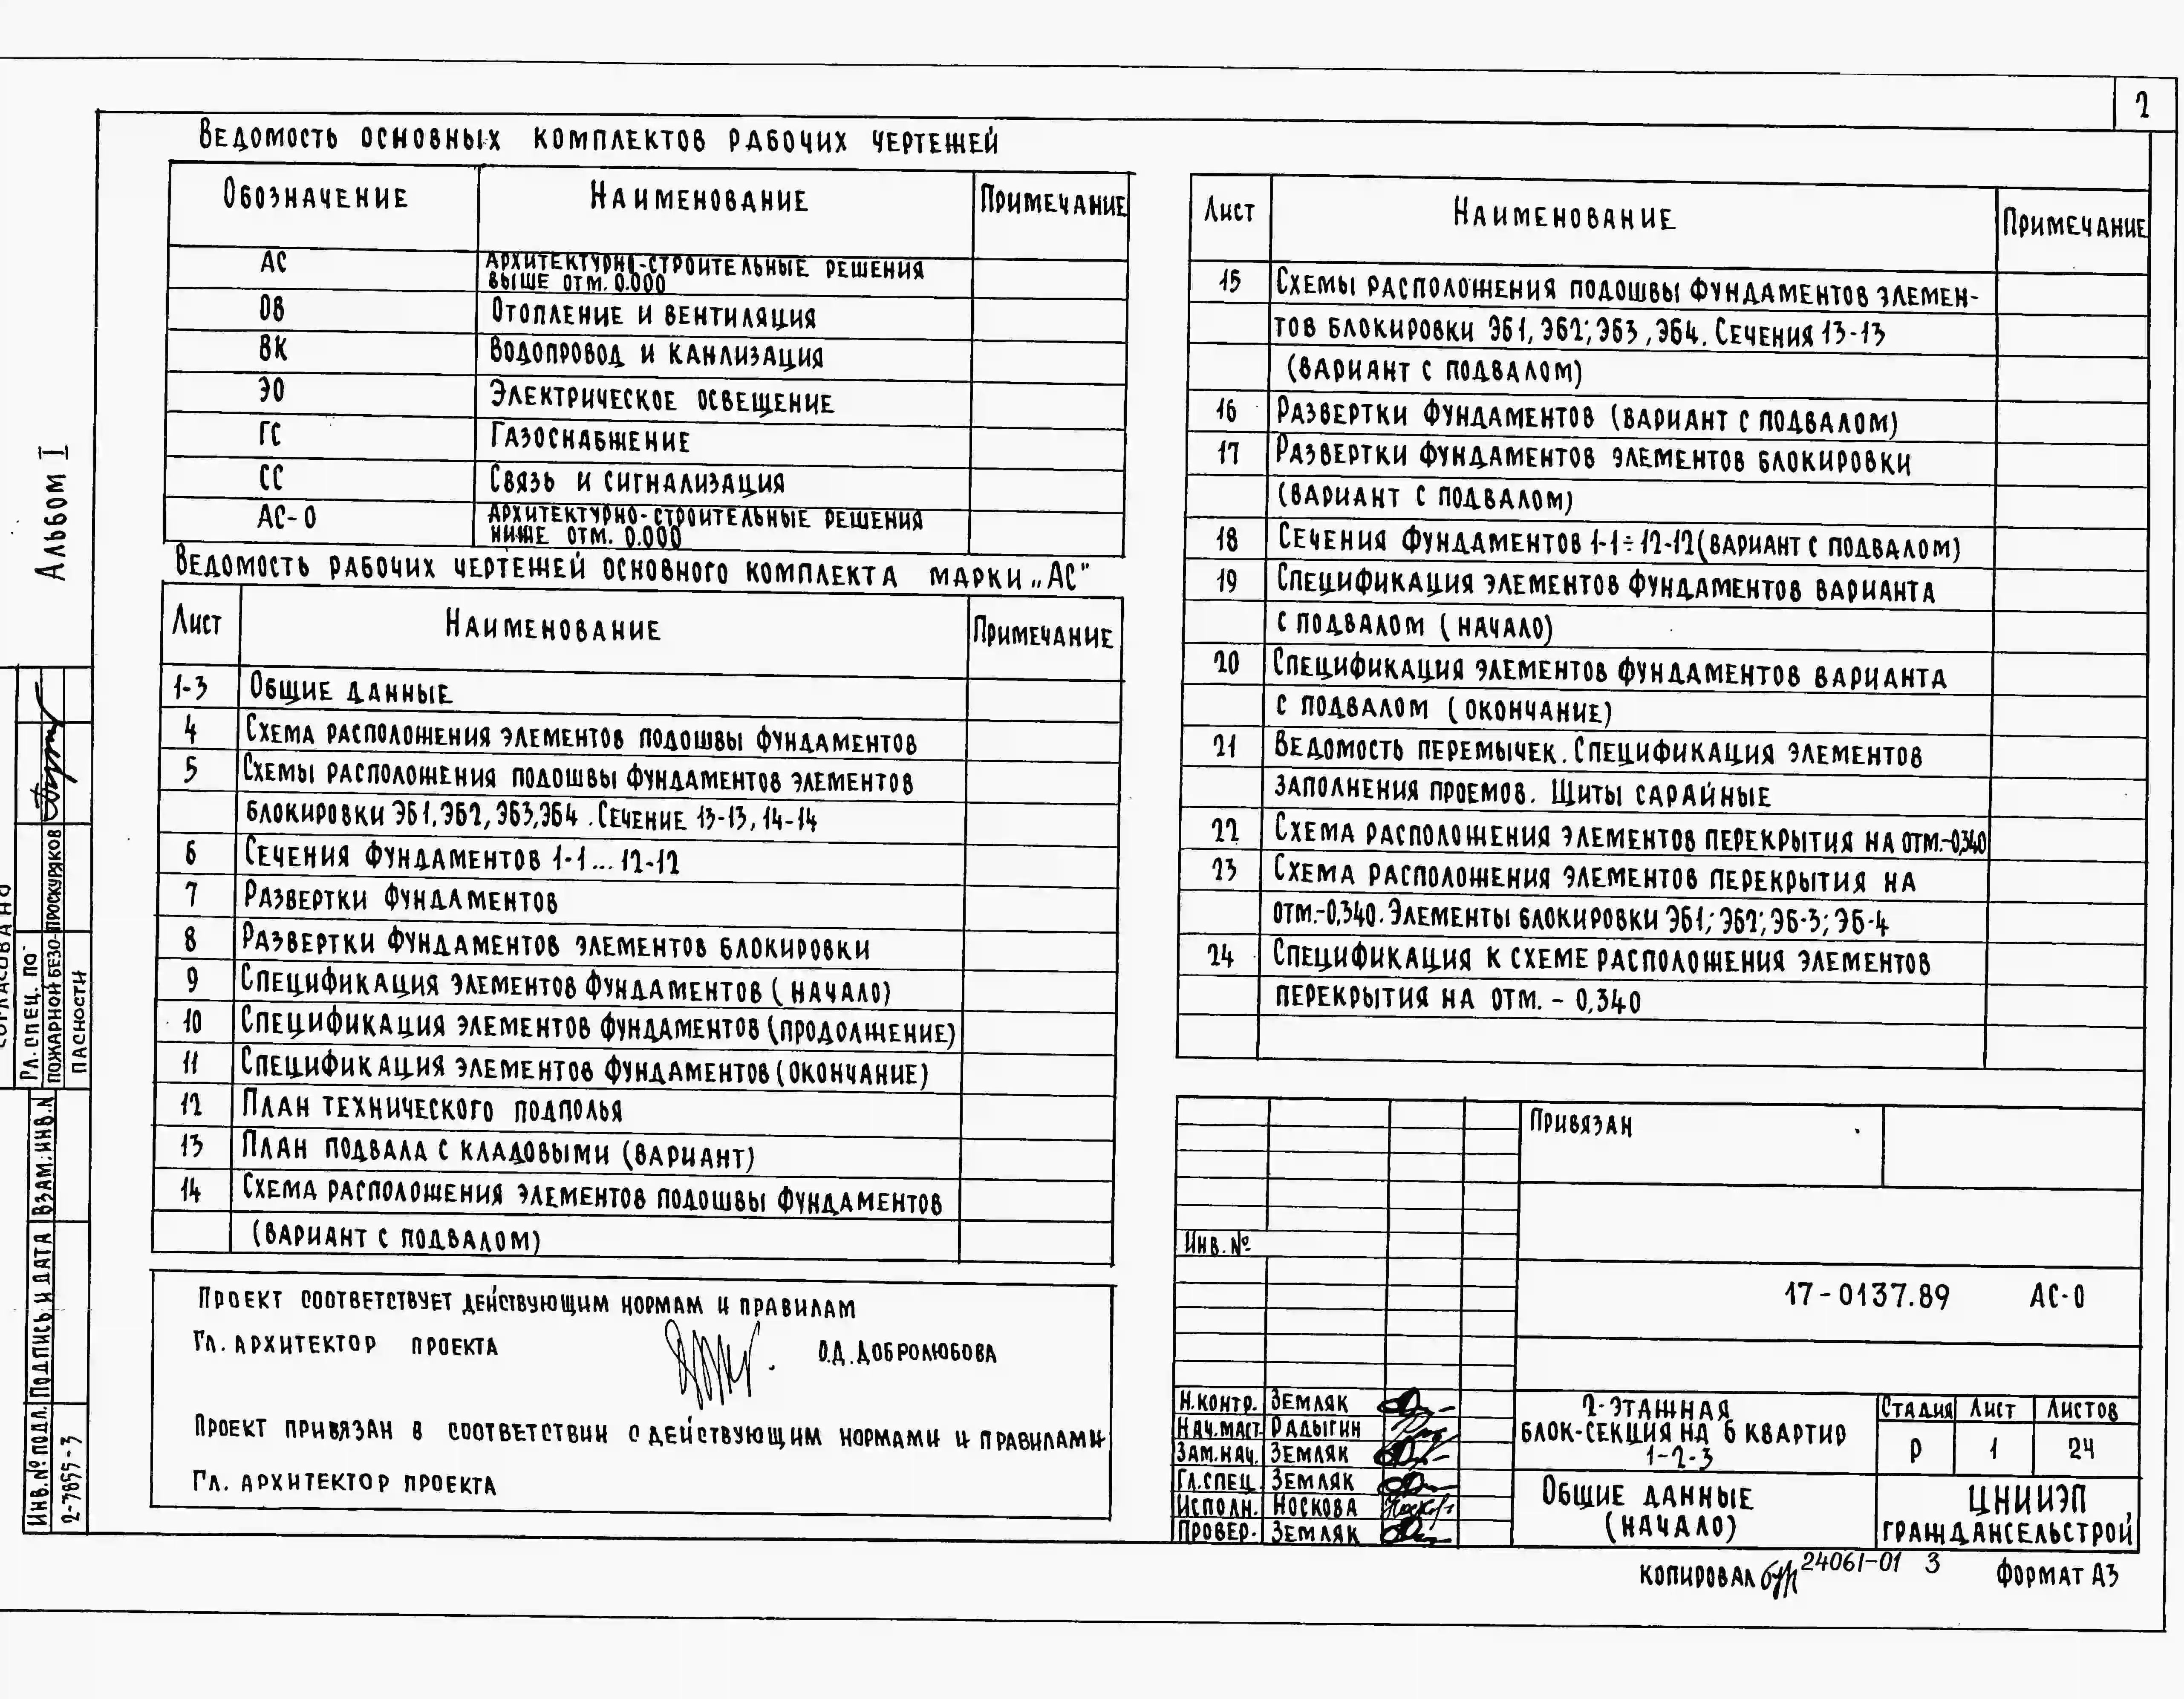 2
Альбом I
Ведомость основных комплектов рабочих чертежей
Обозначение Наименование Примечание
АС Архитектурно-строительные решения
выше отм. 0.000
ОВ Отопление и вентиляция
ВК Водопровод и канлизация
ЭО Электрическое освещение
ГС Газоснабжение
СС Связь и сигнализация
АС-0 Архитектурно-строительные решения
ниже отм. 0.000
Ведомость рабочих чертежей основного комплекта марки „АС"
Лист Наименование Примечание
1-3 Общие данные
4 Схема расположения элементов подошвы фундаментов
5 Схемы расположения подошвы фундаментов элементов
блокировки ЭБ1, ЭБ2, ЭБ3, ЭБ4. Сечение 13-13, 14-14
6 Сечения фундаментов 1-1...12-12
7 Развертки фундаментов
8 Развертки фундаментов элементов блокировки
9 Спецификация элементов фундаментов (начало)
10 Спецификация элементов фундаментов (продолжение)
11 Спецификация элементов фундаментов (окончание)
12 План технического подполья
13 План подвала с кладовыми (вариант)
14 Схема расположения элементов подошвы фундаментов
(вариант с подвалом)
Лист Наименование Примечание
15 Схемы расположения подошвы фундаментов элемен-
тов блокировки ЭБ1, ЭБ2; ЭБ3, ЭБ4. Сечения 13-13
(вариант с подвалом)
16 Развертки фундаментов (вариант с подвалом)
17 Развертки фундаментов элементов блокировки
(вариант с подвалом)
18 Сечения фундаментов 1-1÷12-12 (вариант с подвалом)
19 Спецификация элементов фундаментов варианта
с подвалом (начало)
20 Спецификация элементов фундаментов варианта
с подвалом (окончание)
21 Ведомость перемычек. Спецификация элементов
заполнения проемов. Щиты сарайные
22 Схема расположения элементов перекрытия на отм.-0,340
23 Схема расположения элементов перекрытия на
отм.-0,340. Элементы блокировки ЭБ1; ЭБ2; ЭБ-3; ЭБ-4
24 Спецификация к схеме расположения элементов
перекрытия на отм. - 0,340
Проект соответствует действующим нормам и правилам
Гл. архитектор проекта О.Д. Добролюбова
Проект привязан в соответствии с действующим нормами и правилами
Гл. архитектор проекта
Привязан
Инв. №
17-0137.89 АС-0
Н.контр. Земляк
Нач.маст. Радыгин
Зам.нач. Земляк
Гл.спец. Земляк
Исполн. Носкова
Провер. Земляк
2-этажная
блок-секция на 6 квартир
1-2-3
Стадия Лист Листов
Р 1 24
Общие данные
(начало)
ЦНИИЭП
граждансельстрой
Копировал 24061-01 3 Формат А3
Согласовано
Гл. спец. по
пожарной безо-
пасности
Проскуряков
Взам. инв. №
Подпись и дата
Инв. № подл.
2-7855-3